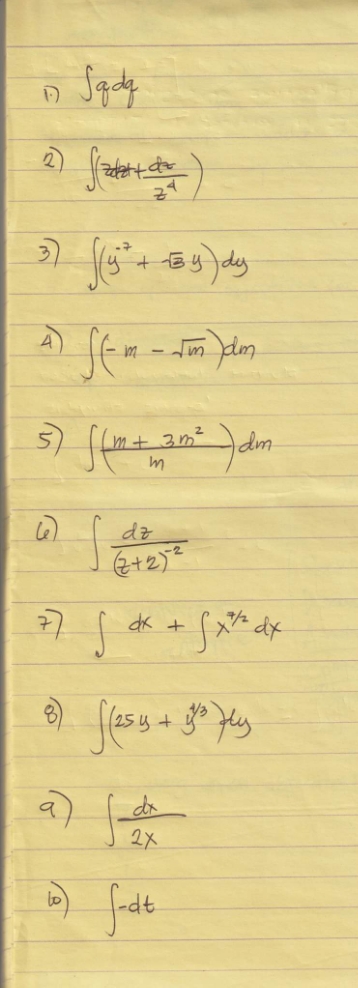 1) ∫qdq
2) ∫(zdz + dz/z⁴)
3) ∫(y⁻⁷ + √3 y) dy
4) ∫(-m - √m) dm
5) ∫((m + 3m²)/m) dm
6) ∫ dz/(z+2)⁻²
7) ∫ dx + ∫ x^(7/2) dx
8) ∫(25y + y^(1/3)) dy
9) ∫ dx/2x
10) ∫-dt